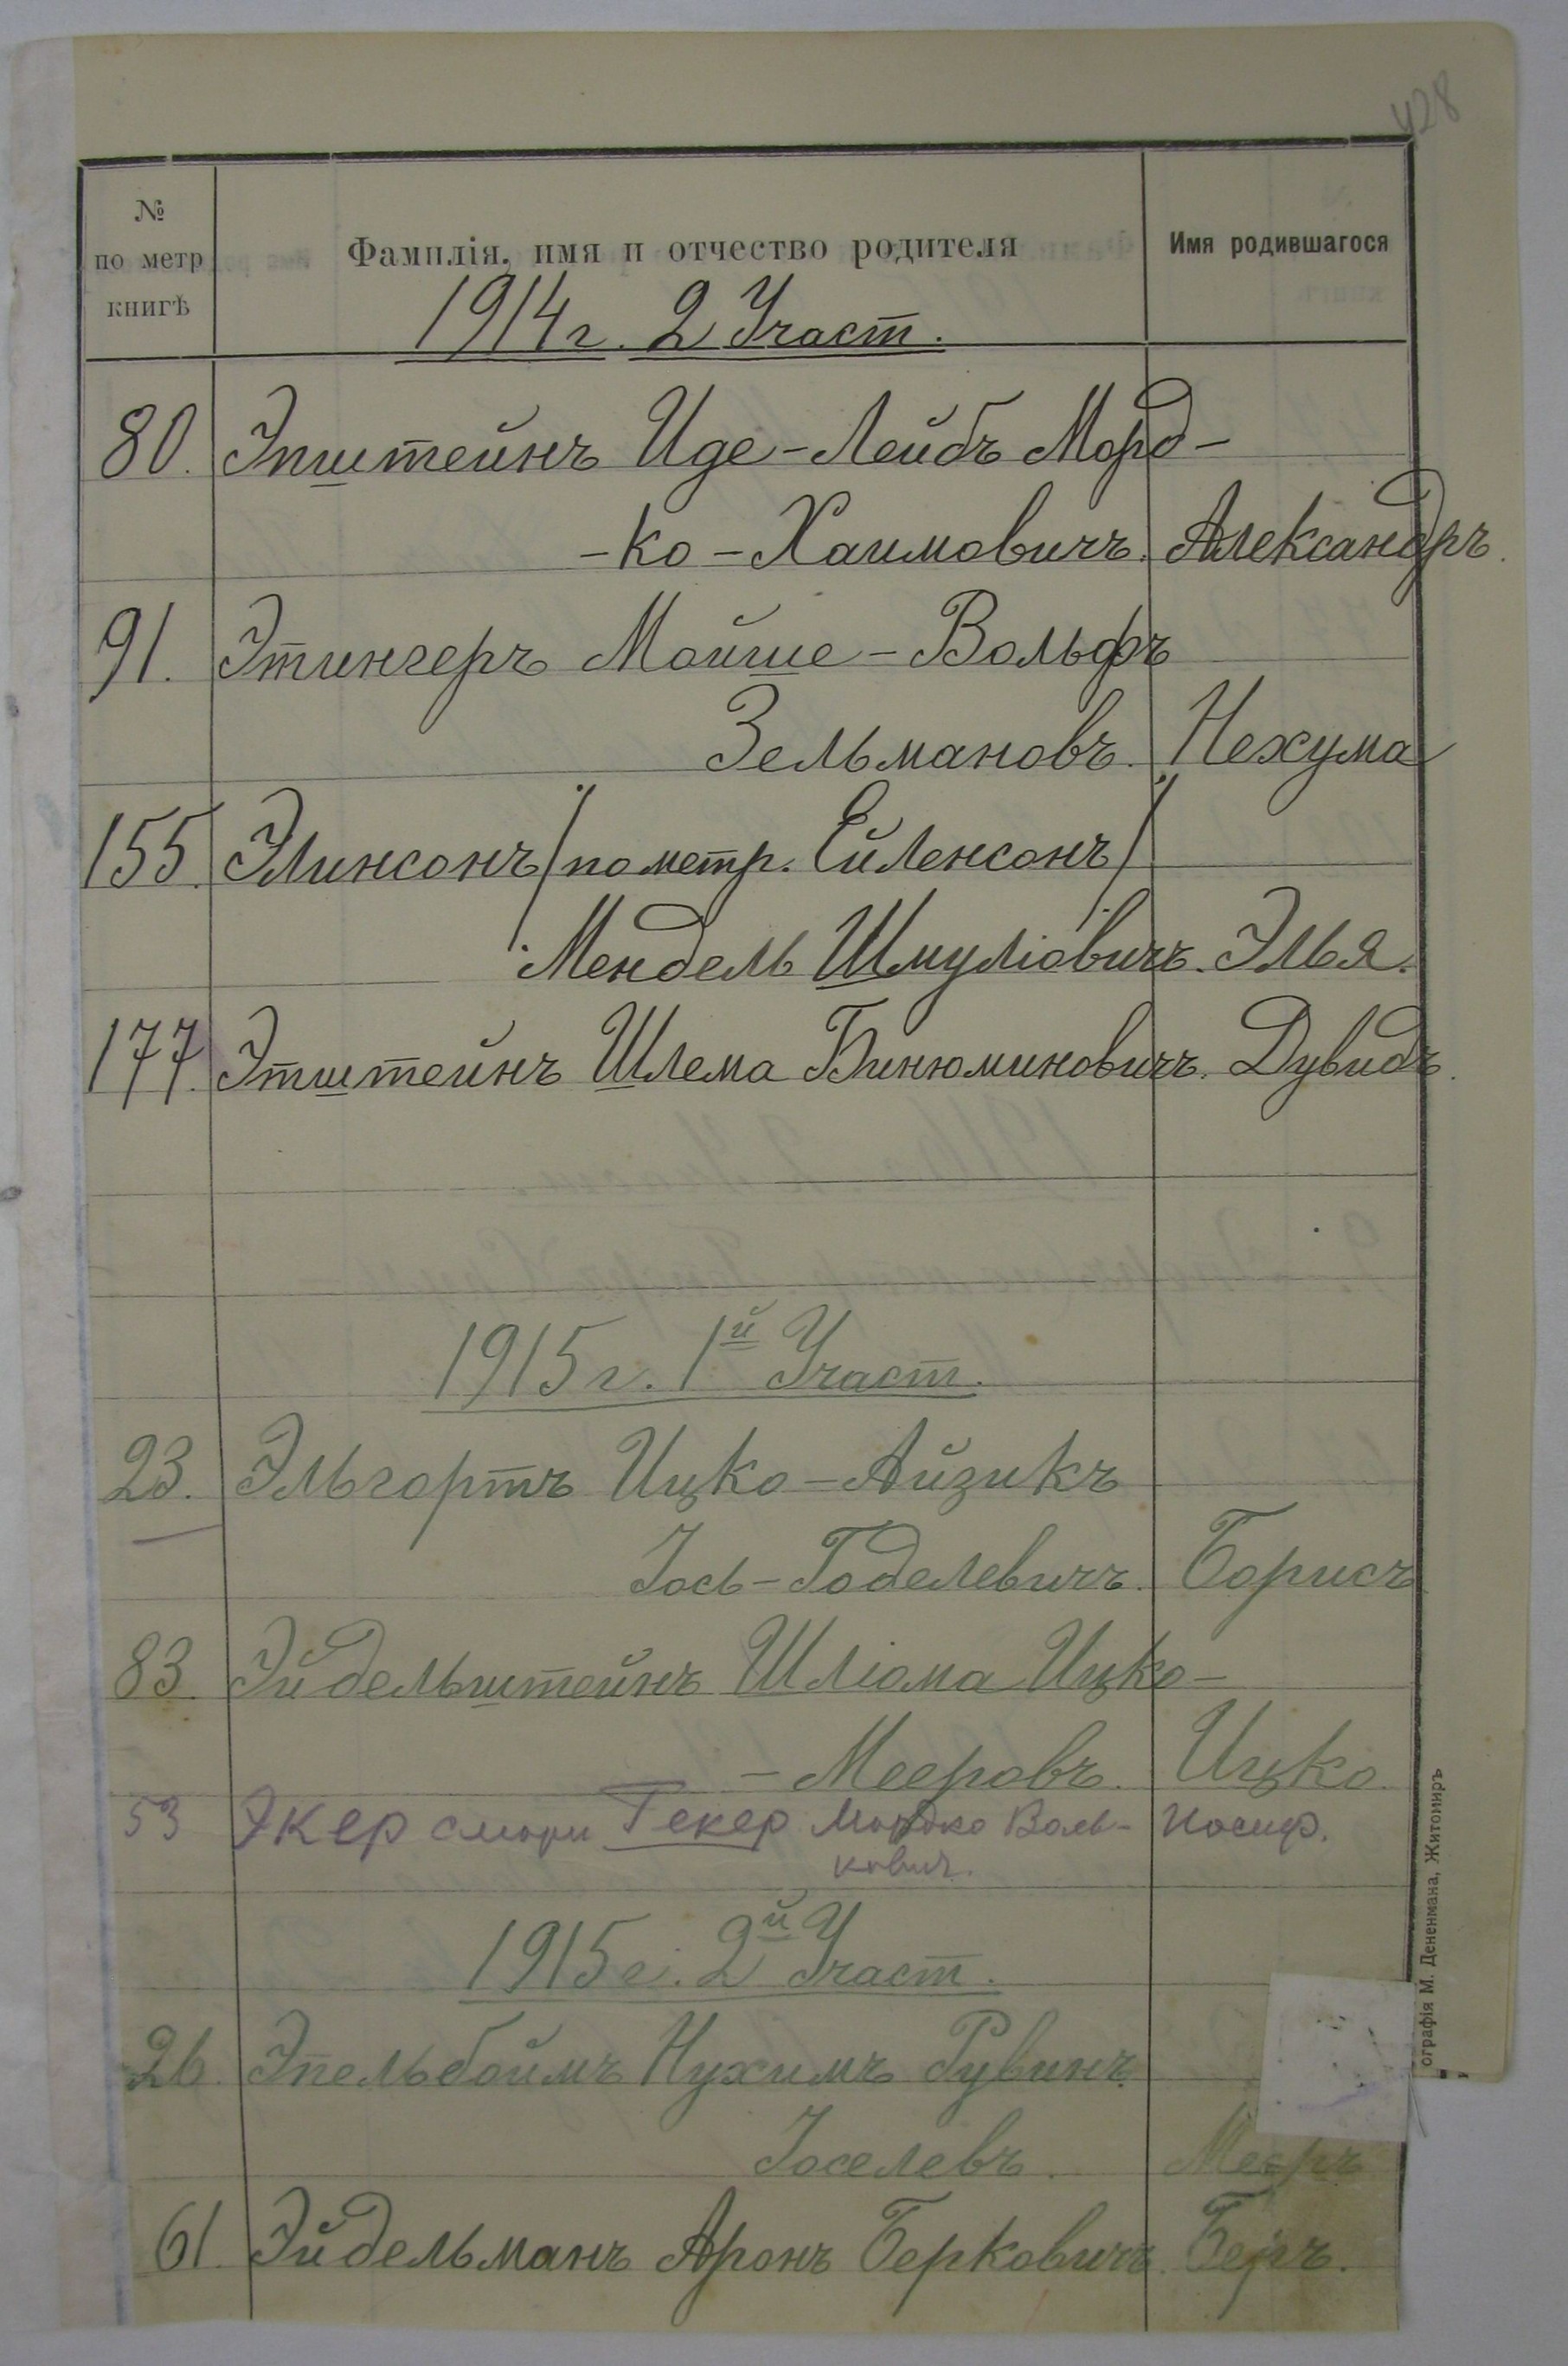 428
№
по метр
книгѣ
Фамилія, имя и отчество родителя
Имя родившагося
1914 г. 2 Участ.
80. Эпштейнъ Иде-Лейбъ Морд-
-ко-Хаимовичъ. Александръ.
91. Этингеръ Мойше-Вольфъ
Зельмановъ. Нехума
155. Элинсонъ /по метр. Ейленсонъ/
Мендель Шмуліовичъ. Элья.
177. Этштейнъ Шлема Бинюминовичъ. Дувидъ.
1915 г. 1й Участ.
23. Эльгортъ Ицко-Айзикъ
Іось-Годелевичъ. Борисъ
83. Эйдельштейнъ Шліома Ицко-
-Мееровъ. Ицко.
53 Экер смотри Гекер Мордко Воль- Иосиф.
кович.
1915 г. 2й Участ.
26. Эпельбоймъ Нухимъ Рувинъ
Іоселевъ. Мееръ
61. Эйдельманъ Аронъ Берковичъ. Беръ.
ографія М. Дененмана, Житомиръ